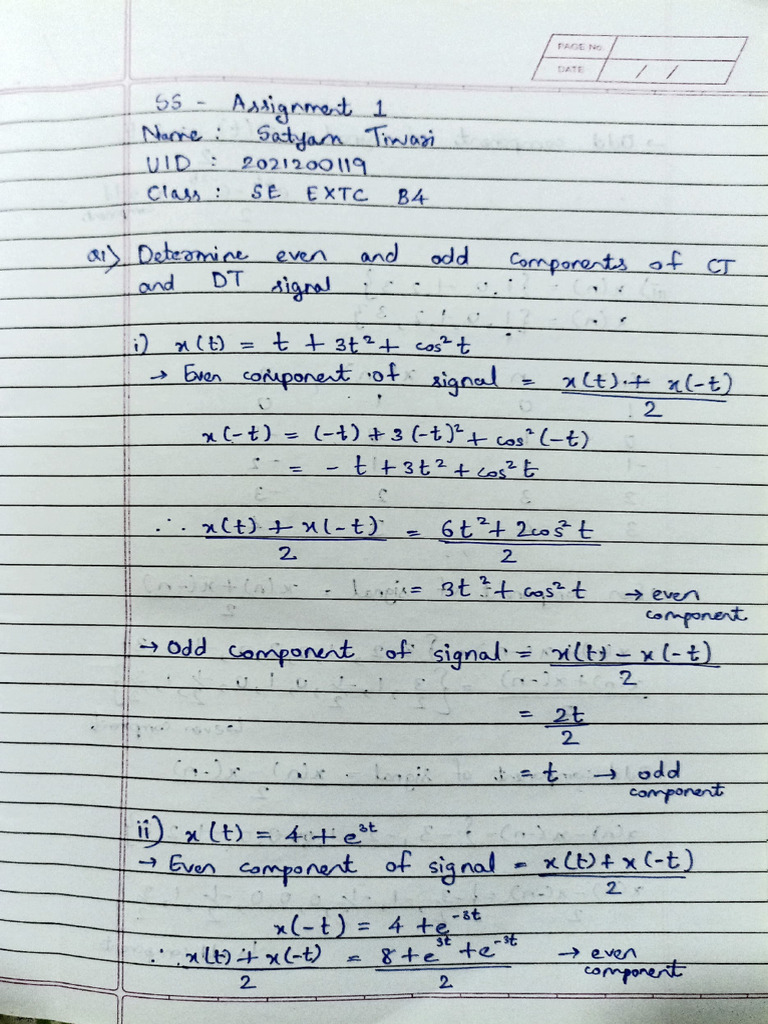 PAGE No.
DATE / /
SS - Assignment 1
Name : Satyam Tiwari
UID : 2021200119
Class : SE EXTC B4
Q1) Determine even and odd components of CT
and DT signal
i) x(t) = t + 3t² + cos²t
→ Even component of signal = x(t) + x(-t)
2
x(-t) = (-t) + 3(-t)² + cos²(-t)
= - t + 3t² + cos²t
∴ x(t) + x(-t) = 6t² + 2cos²t
2 2
= 3t² + cos²t → even
component
→ Odd component of signal = x(t) - x(-t)
2
= 2t
2
= t → odd
component
ii) x(t) = 4 + e³ᵗ
→ Even component of signal = x(t) + x(-t)
2
x(-t) = 4 + e⁻³ᵗ
∴ x(t) + x(-t) = 8 + e³ᵗ + e⁻³ᵗ → even
2 2 component